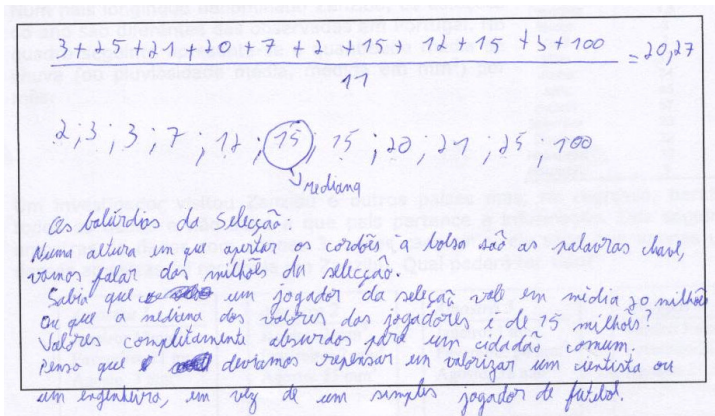 3+25+21+20+7+2+15+12+15+3+100
11
=20,27
2;3;3;7;12;15;15;20;21;25;100
Mediana
Os balúrdios da Selecção:
Numa altura em que apertar os cordões a bolsa são as palavras chave,
vamos falar dos milhões da selecção.
Sabia que um jogador da seleção vale em média 20 milhões
Ou que a mediana dos valores dos jogadores é de 15 milhões?
Valores completamente absurdos para um cidadão comum.
Penso que deviamos repensar em valorizar um cientista ou
um engenheiro, em vez de um simples jogador de futebol.